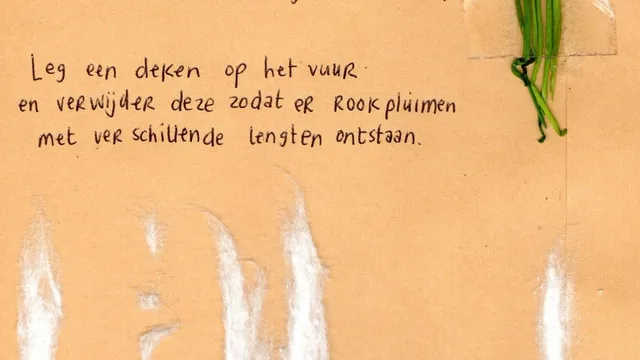 Leg een deken op het vuur
en verwijder deze zodat er rookpluimen
met verschillende lengten ontstaan.